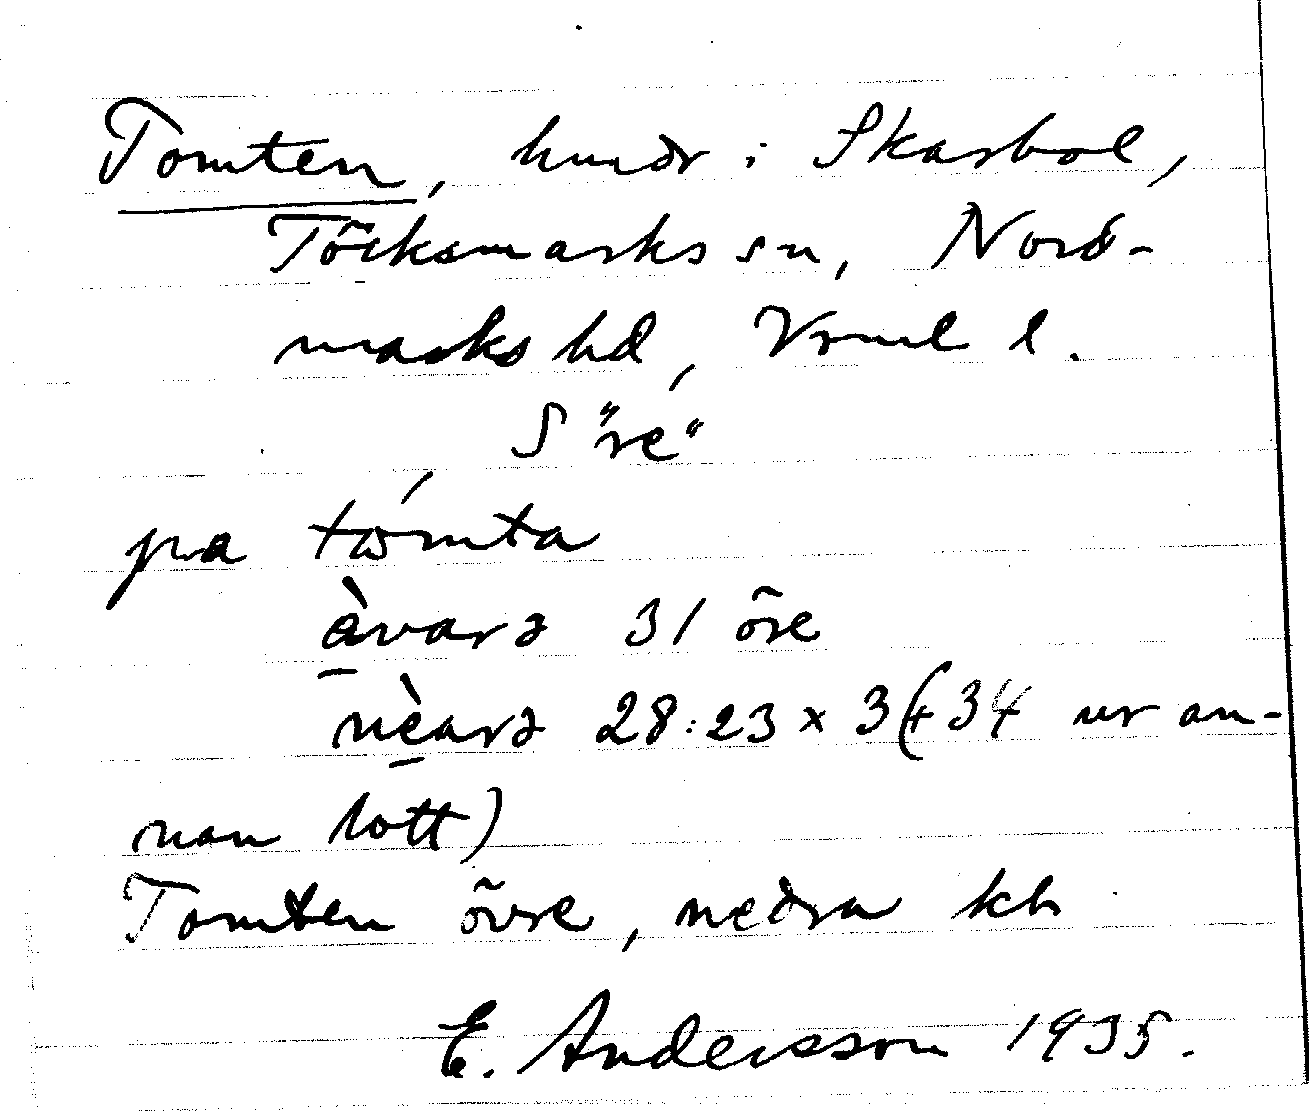 Tomten, hmdr i Skarbol,
Töcksmarks sn, Nord-
marks hd, Vrml l.
S "re"
pa tωmta
àvarə 31 öre
nèarə 28:23 x 3 (+ 34 ur an-
nan lott)
Tomten övre, nedra kb
E. Andersson 1935.